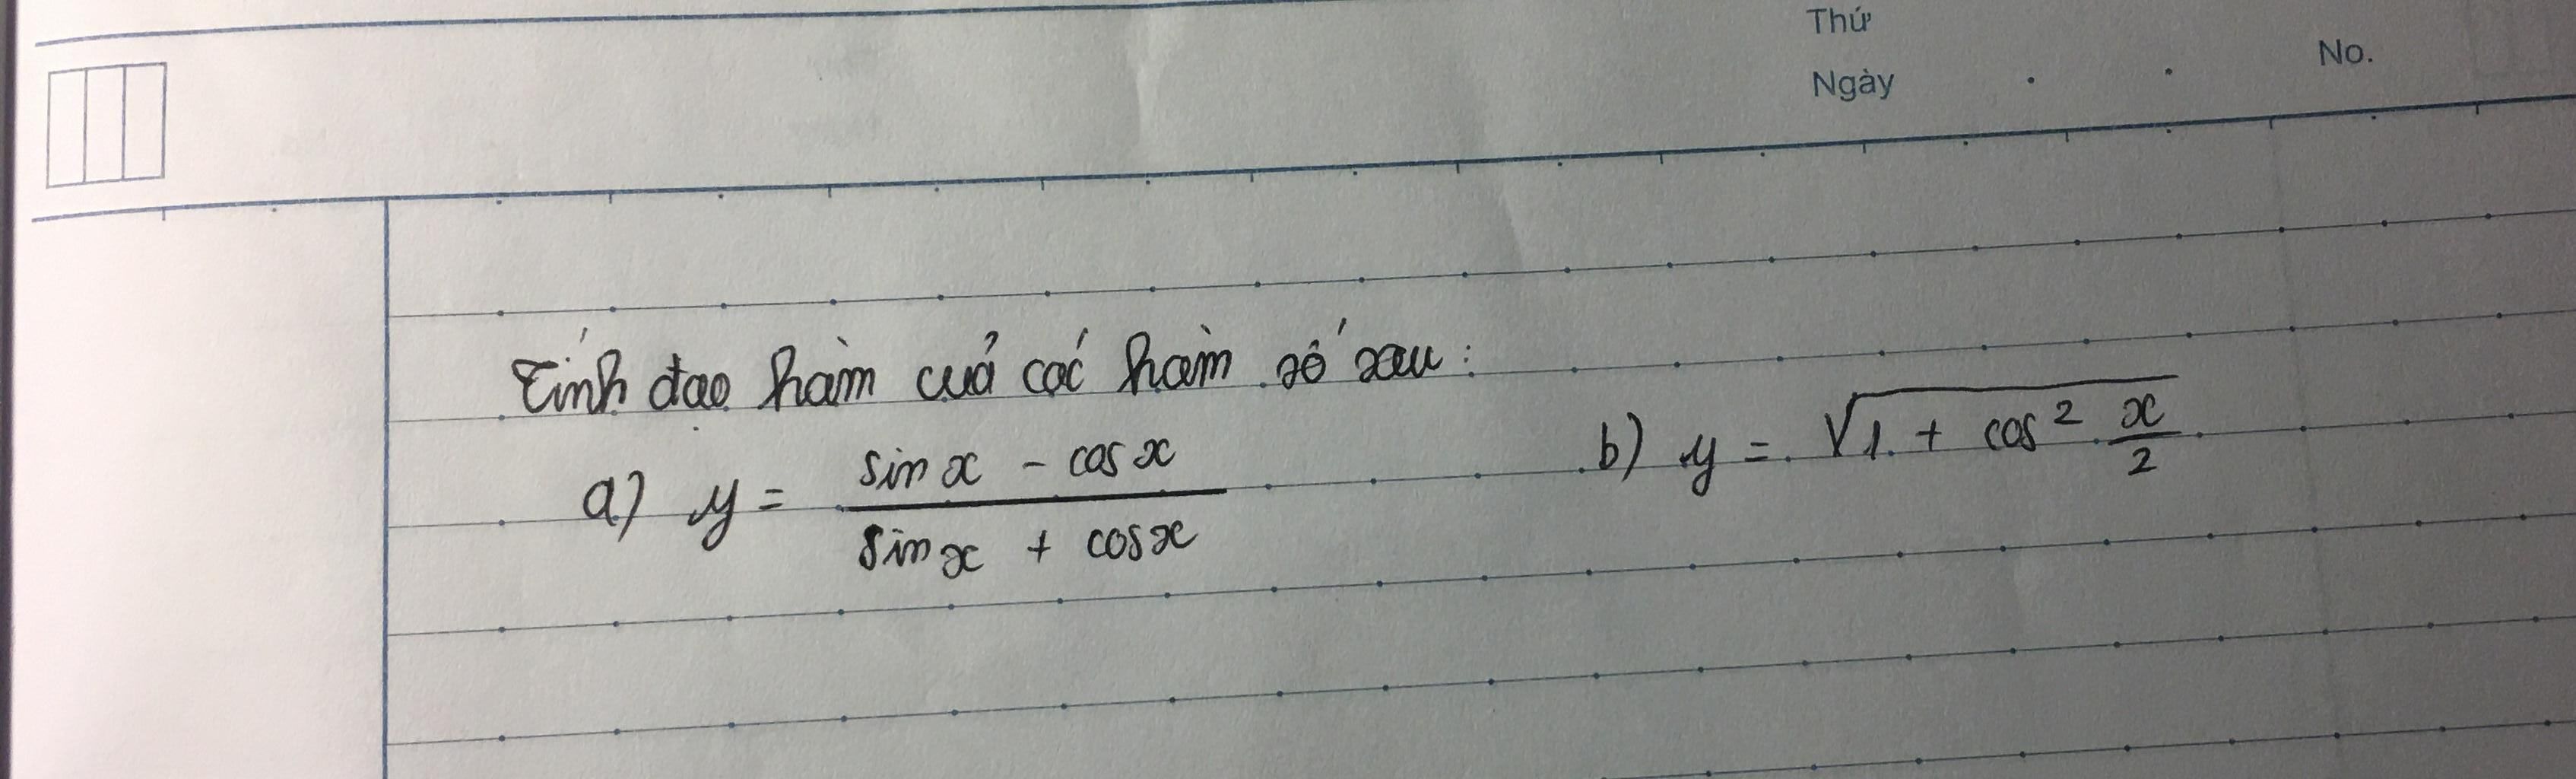 Thứ
Ngày . . No.
Tính đạo hàm của các hàm số sau:
a) y = \frac{sin x - cos x}{sin x + cos x} b) y = \sqrt{1 + cos^2 \frac{x}{2}}